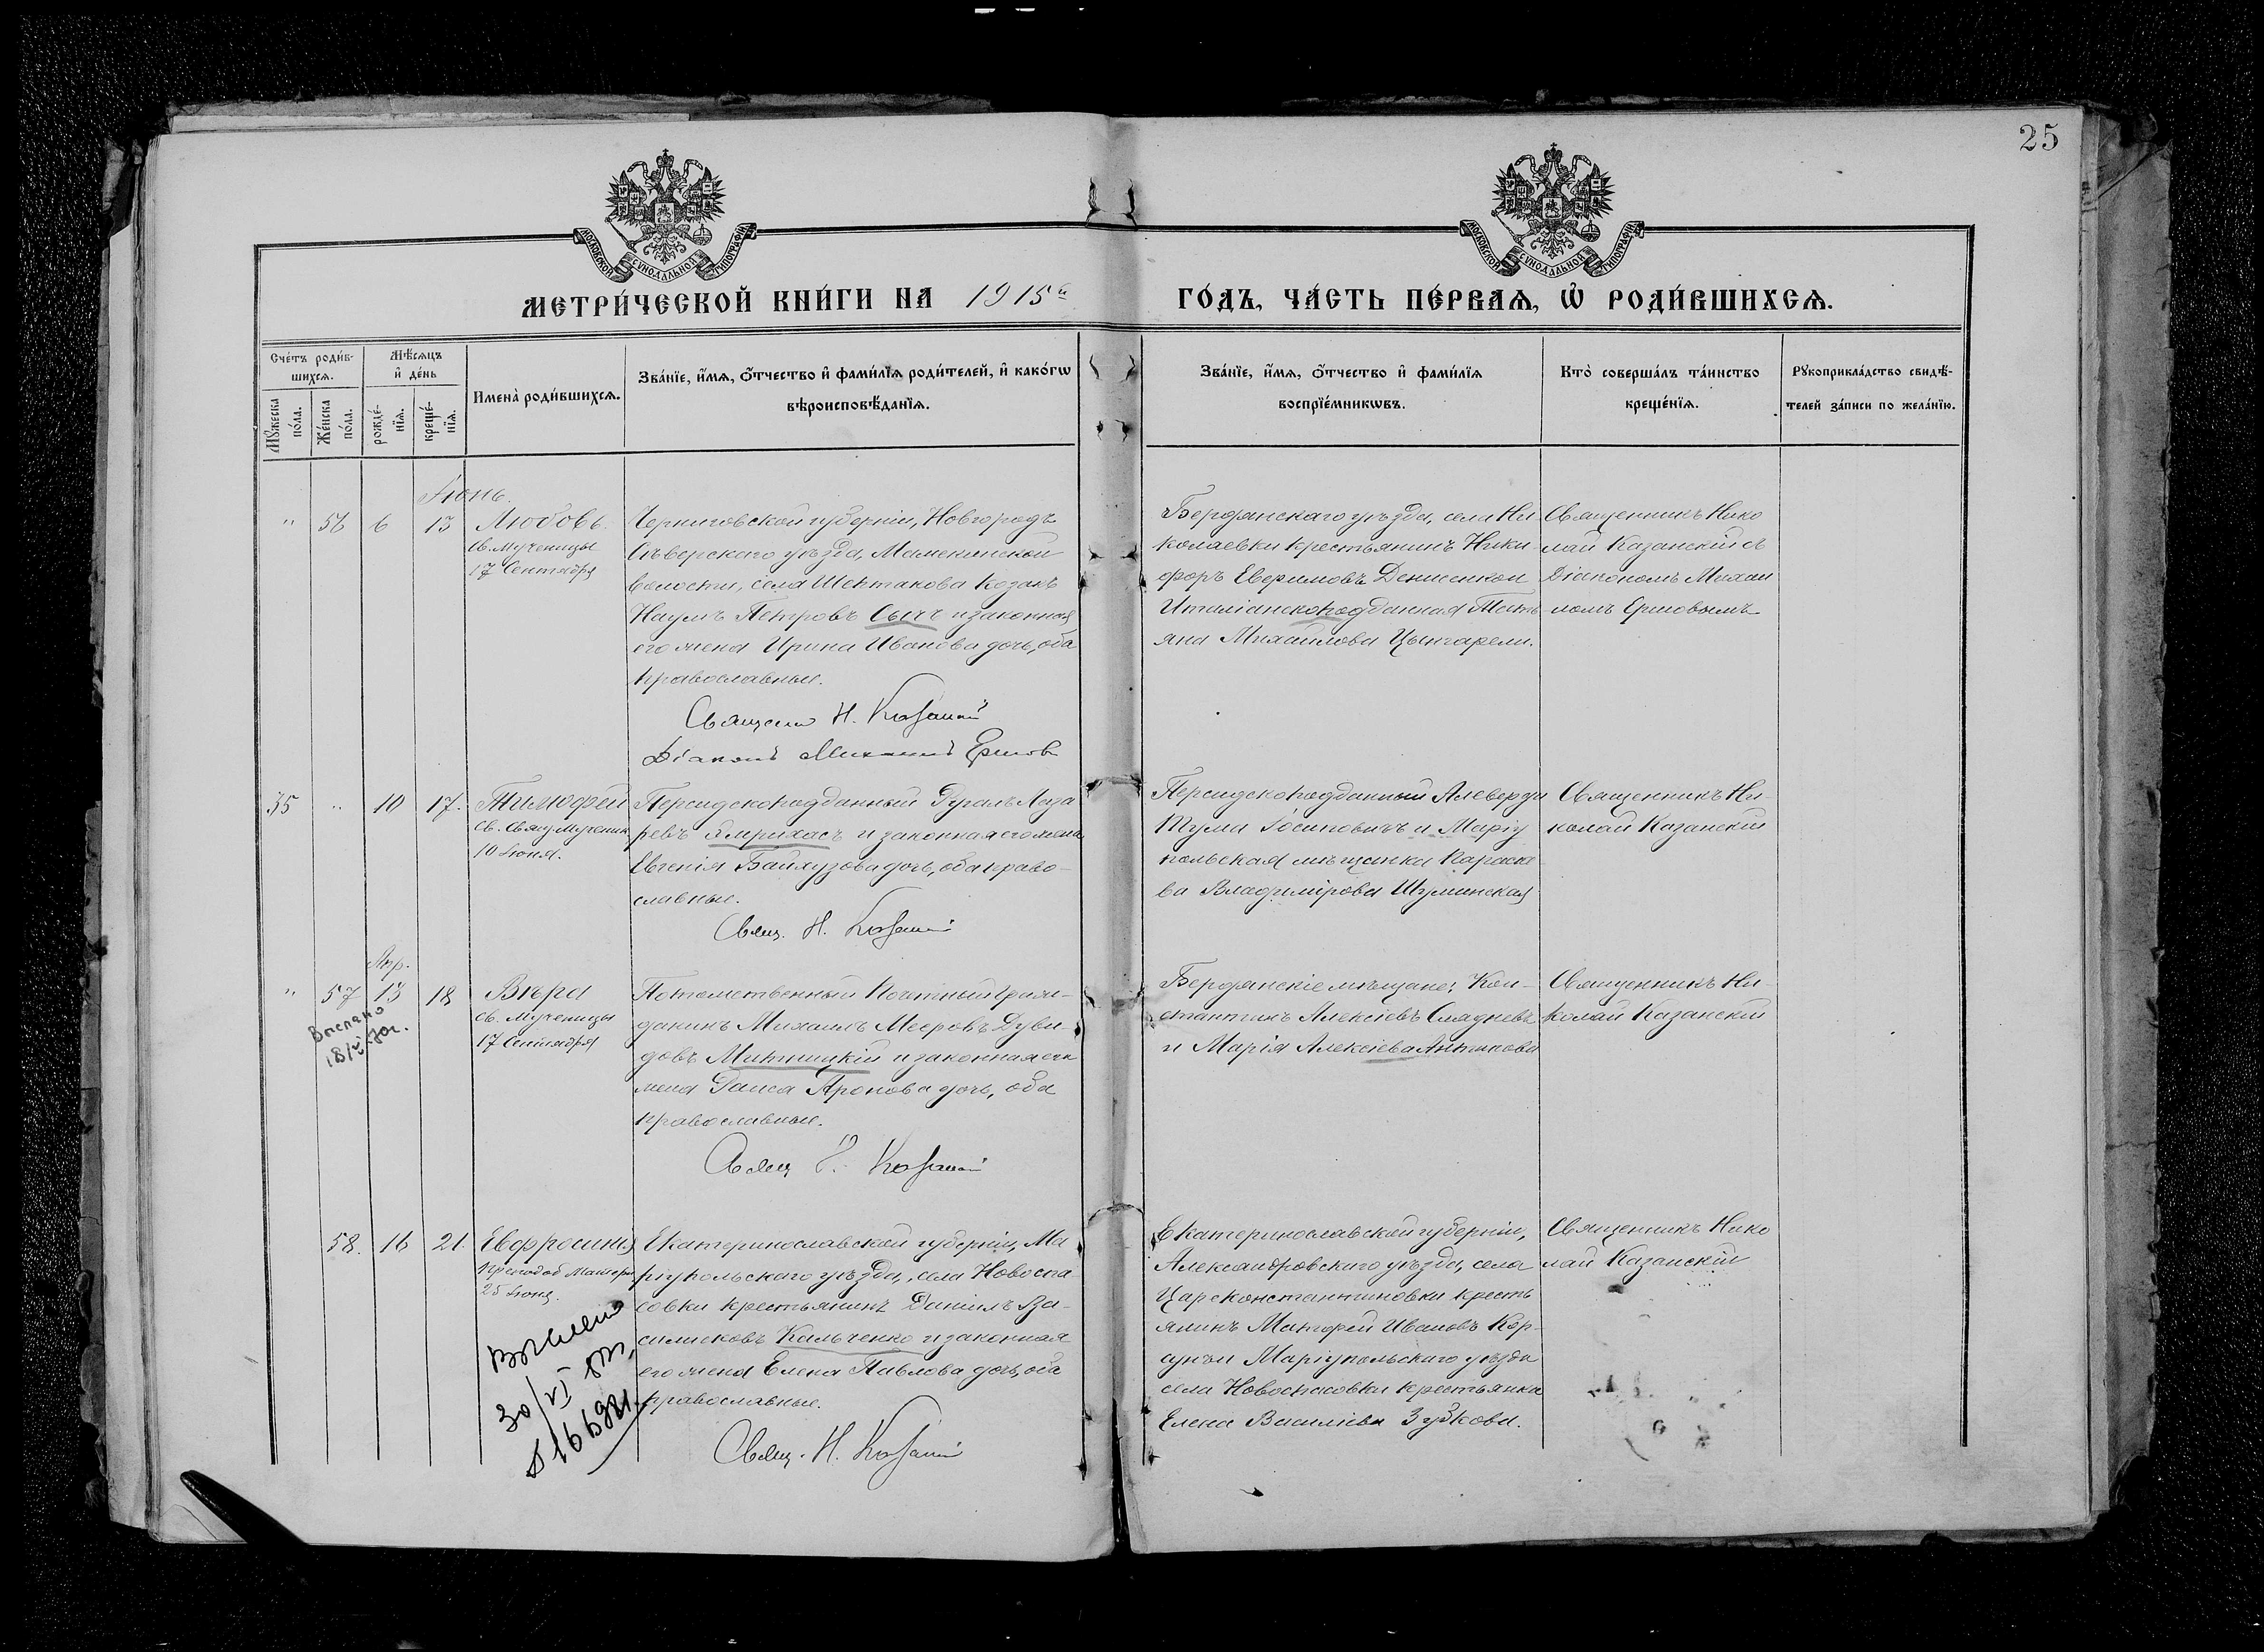 25
МОСКОВСКОЙ СѴНОДАЛЬНОЙ ТИПОГРАФІИ
МОСКОВСКОЙ СѴНОДАЛЬНОЙ ТИПОГРАФІИ
МЕТРИ́ЧЕСКОЙ КНИ́ГИ НА 1915й ГО́ДЪ, ЧА́СТЬ ПЕ́РВАѦ, Ѽ РОДИ́ВШИХСѦ.
Сче́тъ роди́в-
шихсѧ.
Мꙋ́жеска по́ла.
Же́нска по́ла.
Мѣ́сѧцъ
и҆ де́нь
рожде́-
нїѧ.
креще́-
нїѧ.
Имена̀ роди́вшихсѧ.
Зва́нїе, и҆́мѧ, ѻ҆́тчество и҆ фами́лїѧ роди́телей, и҆ како́гѡ
вѣроисповѣ́данїѧ.
Зва́нїе, и҆́мѧ, ѻ҆́тчество и҆ фами́лїѧ
воспрїе́мникѡвъ.
Кто̀ соверша́лъ та́инство
креще́нїѧ.
Рꙋкоприкла́дство свидѣ́-
телей за́писи по жела́нїю.
Іюнь.
" 56 6 13 Любовь.
св. мученицы
17 Сентября
Черниговской губерніи, Новгородъ
Сѣверскаго уѣзда, волости, села Козакъ
Наумъ Петровъ Сычъ и законная
его жена Ирина Иванова дочь, оба
православные.
Н. Казанскій
Діаконъ Михаилъ Ершовъ
Бердянскаго уѣзда, села Ни
колаевки крестьянинъ Ники
форъ Денисенко и
Италіанскоподданная Тать
яна Михаилова Цынгарели.
Священникъ Нико
лай Казанскій съ
Діакономъ Михаи
ломъ Ершовымъ
35 " 10 17. Тимофей
св. свящ мученик
10 Іюня.
Персидскоподданный Лаза
ревъ и законная его жена
Евгенія дочь, оба право-
славные.
Свящ. Н. Казанскій
Персидскоподданный Алеверди
Тума Іосиповичъ и Маріу
польская мѣщанка Параске
ва Владимірова Шуминская
Священникъ Ни-
колай Казанскій
Апр.
" 57 13 18 Вѣра
св. Мученицы
17 Сентября
Выслано
18/V-70г.
Потомственный Почетный Граж-
данинъ Михаилъ Мееровъ Дуви-
довъ Митницкій и законная его
жена Раиса Аронова дочь, оба
православные.
Свящ Н. Казанскій
Бердянскіе мѣщане: Кон-
стантинъ Алексіевъ
и Марія Алексіева Антипова
Священникъ Ни-
колай Казанскій
58. 16 21. Евфросинія
преподоб Матери
25 Іюня.
30/VI
Екатеринославской губерніи, Ма
ріупольскаго уѣзда, села Новоспа
совки крестьянинъ Даніилъ Ва-
силисковъ Кальченко и законная
его жена Елена Павлова дочь, оба
православные.
Свящ. Н. Казанскій
Екатеринославской губерніи,
Александровскаго уѣзда, села
Цареконстантиновки кресть
янинъ Матфей Ивановъ Кор-
сунъ и Маріупольскаго уѣзда
села Новоспасовки крестьянка
Елена Василіева Зубкова.
Священникъ Нико
лай Казанскій